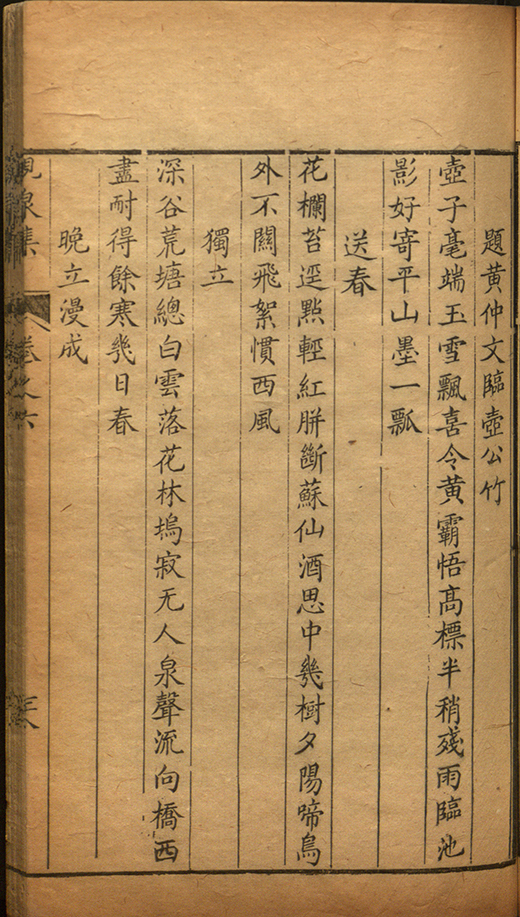 題黄仲文臨壺公竹
壺子毫端玉雪飄喜令黄霸悟髙標半稍殘雨臨池
影好寄平山墨一瓢
送春
花欄苔逕㸃輕紅胼斷蘇仙酒思中㡬樹夕陽啼鳥
外不關飛絮慣西風
獨立
深谷荒塘總白雲落花林塢寂无人泉聲流向橋西
盡耐得餘寒㡬日春
晚立漫成
泉集
卷之六